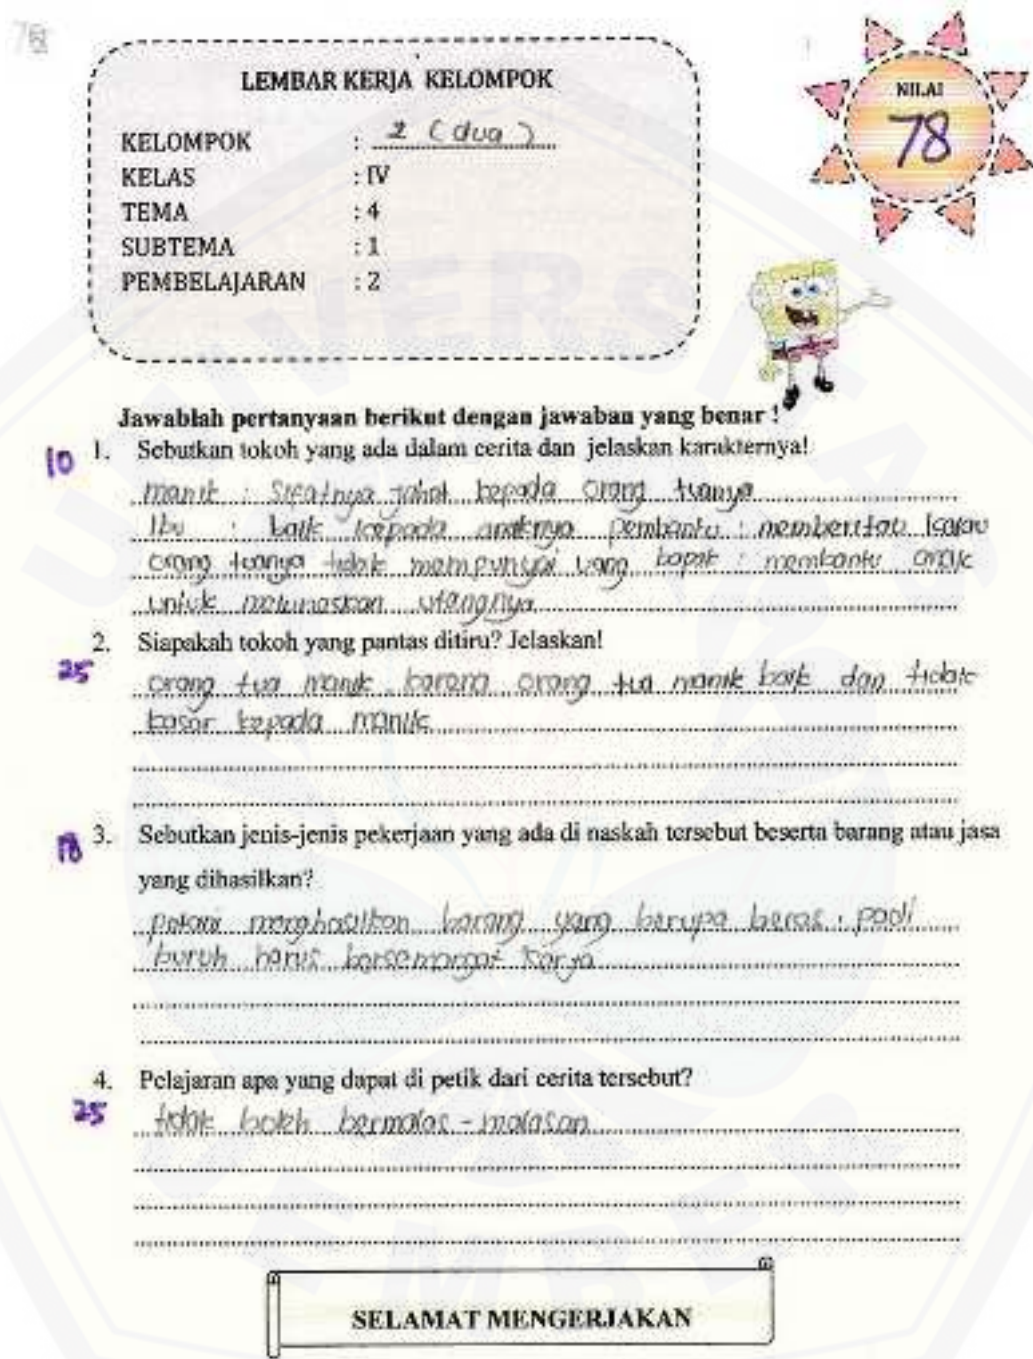 LEMBAR KERJA KELOMPOK
NILAI
78
KELOMPOK : 2 (dua)
KELAS : IV
TEMA : 4
SUBTEMA : 1
PEMBELAJARAN : 2
Jawablah pertanyaan berikut dengan jawaban yang benar !
10 1. Sebutkan tokoh yang ada dalam cerita dan jelaskan karakternya!
manik : Sifatnya jahat kepada orang tuanya
Ibu : baik kepada anaknya pembantu : memberitau kalau
orang tuanya tidak mempunyai uang bapak : membantu anak
untuk melunaskan utangnya
2. Siapakah tokoh yang pantas ditiru? Jelaskan!
25
orang tua manik karena orang tua manik baik dan tidak
kasar kepada manik
18 3. Sebutkan jenis-jenis pekerjaan yang ada di naskah tersebut beserta barang atau jasa
yang dihasilkan?
petani menghasilkan barang yang berupa beras, padi
buruh harus bersemangat kerja
4. Pelajaran apa yang dapat di petik dari cerita tersebut?
25
tidak boleh bermalas-malasan
SELAMAT MENGERJAKAN
UNIVERSITAS
JEMBER